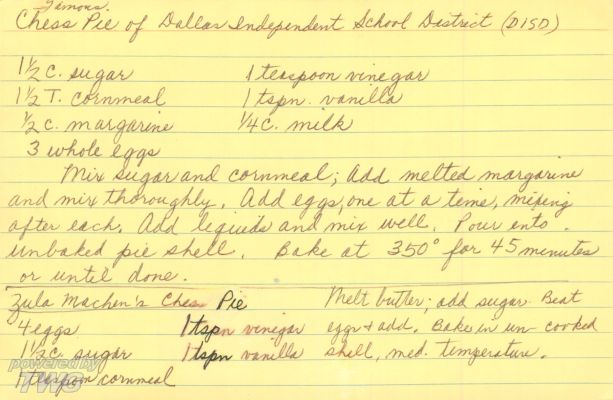 Famous.
Chess Pie of Dallas Independent School District (DISD)
1½ c. sugar 1 teaspoon vinegar
1½ T. cornmeal 1 tspn. vanilla
½ c. margarine ¼ c. milk
3 whole eggs
Mix sugar and cornmeal; add melted margarine
and mix thoroughly. Add eggs, one at a time, mixing
after each. Add liquids and mix well. Pour into
unbaked pie shell. Bake at 350° for 45 minutes
or until done.
Zula Machen's Chess Pie Melt butter; add sugar. Beat
4 eggs 1 tspn vinegar eggs + add. Bake in un-cooked
1½ c. sugar 1 tspn vanilla shell, med. temperature.
1 teaspoon cornmeal
powered by
TWS